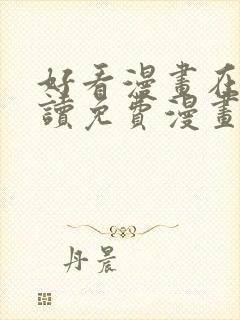 好看漫畫在
讀免費漫畫
丹晨